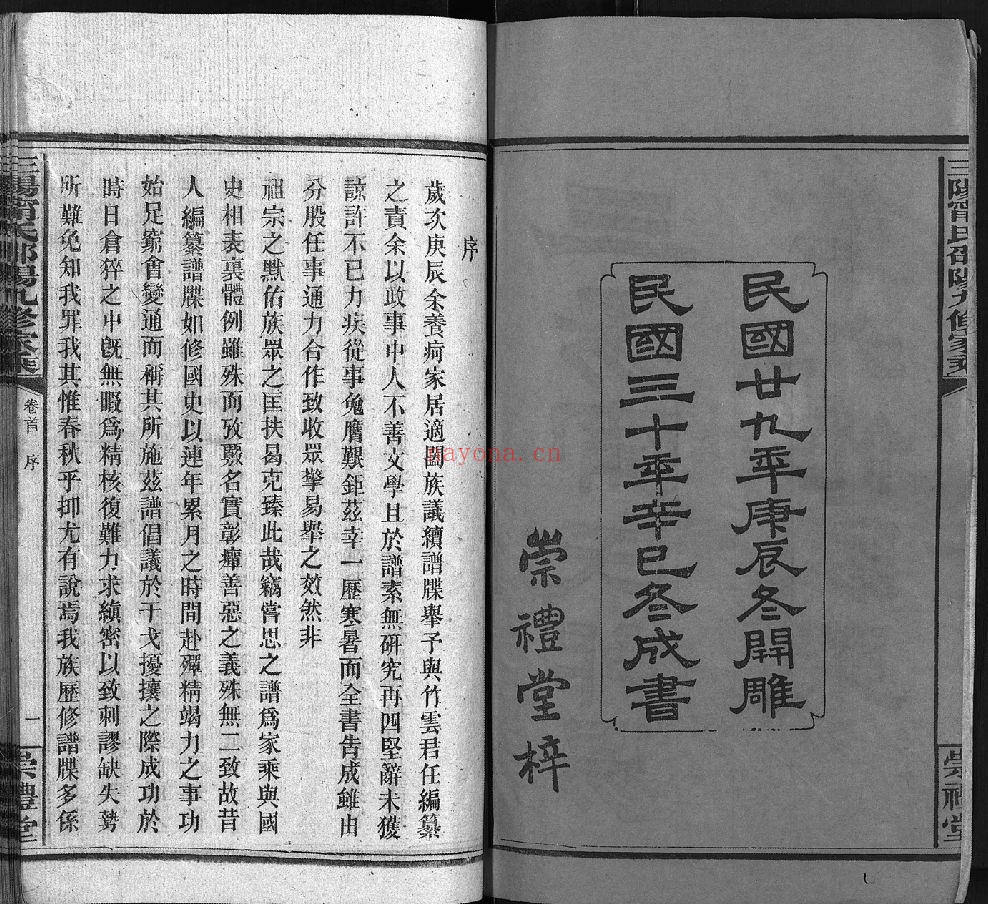 三陽甯氏邵陽九修家乘
崇禮堂
民國廿九年庚辰冬開雕
民國三十年辛巳冬成書
崇禮堂梓
序
歲次庚辰余養疴家居適闔族議續譜牒舉予與竹雲君任編纂
之責余以政事中人不善文學且於譜素無硏究再四堅辭未獲
諒許不已力疾從事兔膺艱鉅茲幸一歷寒暑而全書告成雖由
分股任事通力合作致收眾擎易舉之效然非
祖宗之默佑族眾之匡扶曷克臻此哉竊嘗思之譜爲家乘與國
史相表裏體例雖殊而攷覈名實彰癉善惡之義殊無二致故昔
人編纂譜牒如修國史以連年累月之時間赴殫精竭力之事功
始足窮會變通而稱其所施茲譜倡議於干戈擾攘之際成功於
時日倉猝之中旣無暇爲精核復難力求縝密以致刺謬缺失勢
所難免知我罪我其惟春秋乎抑尤有說焉我族歷修譜牒多係
三陽甯氏邵陽九修家乘
卷首 序
一
崇禮堂
nayona.cn